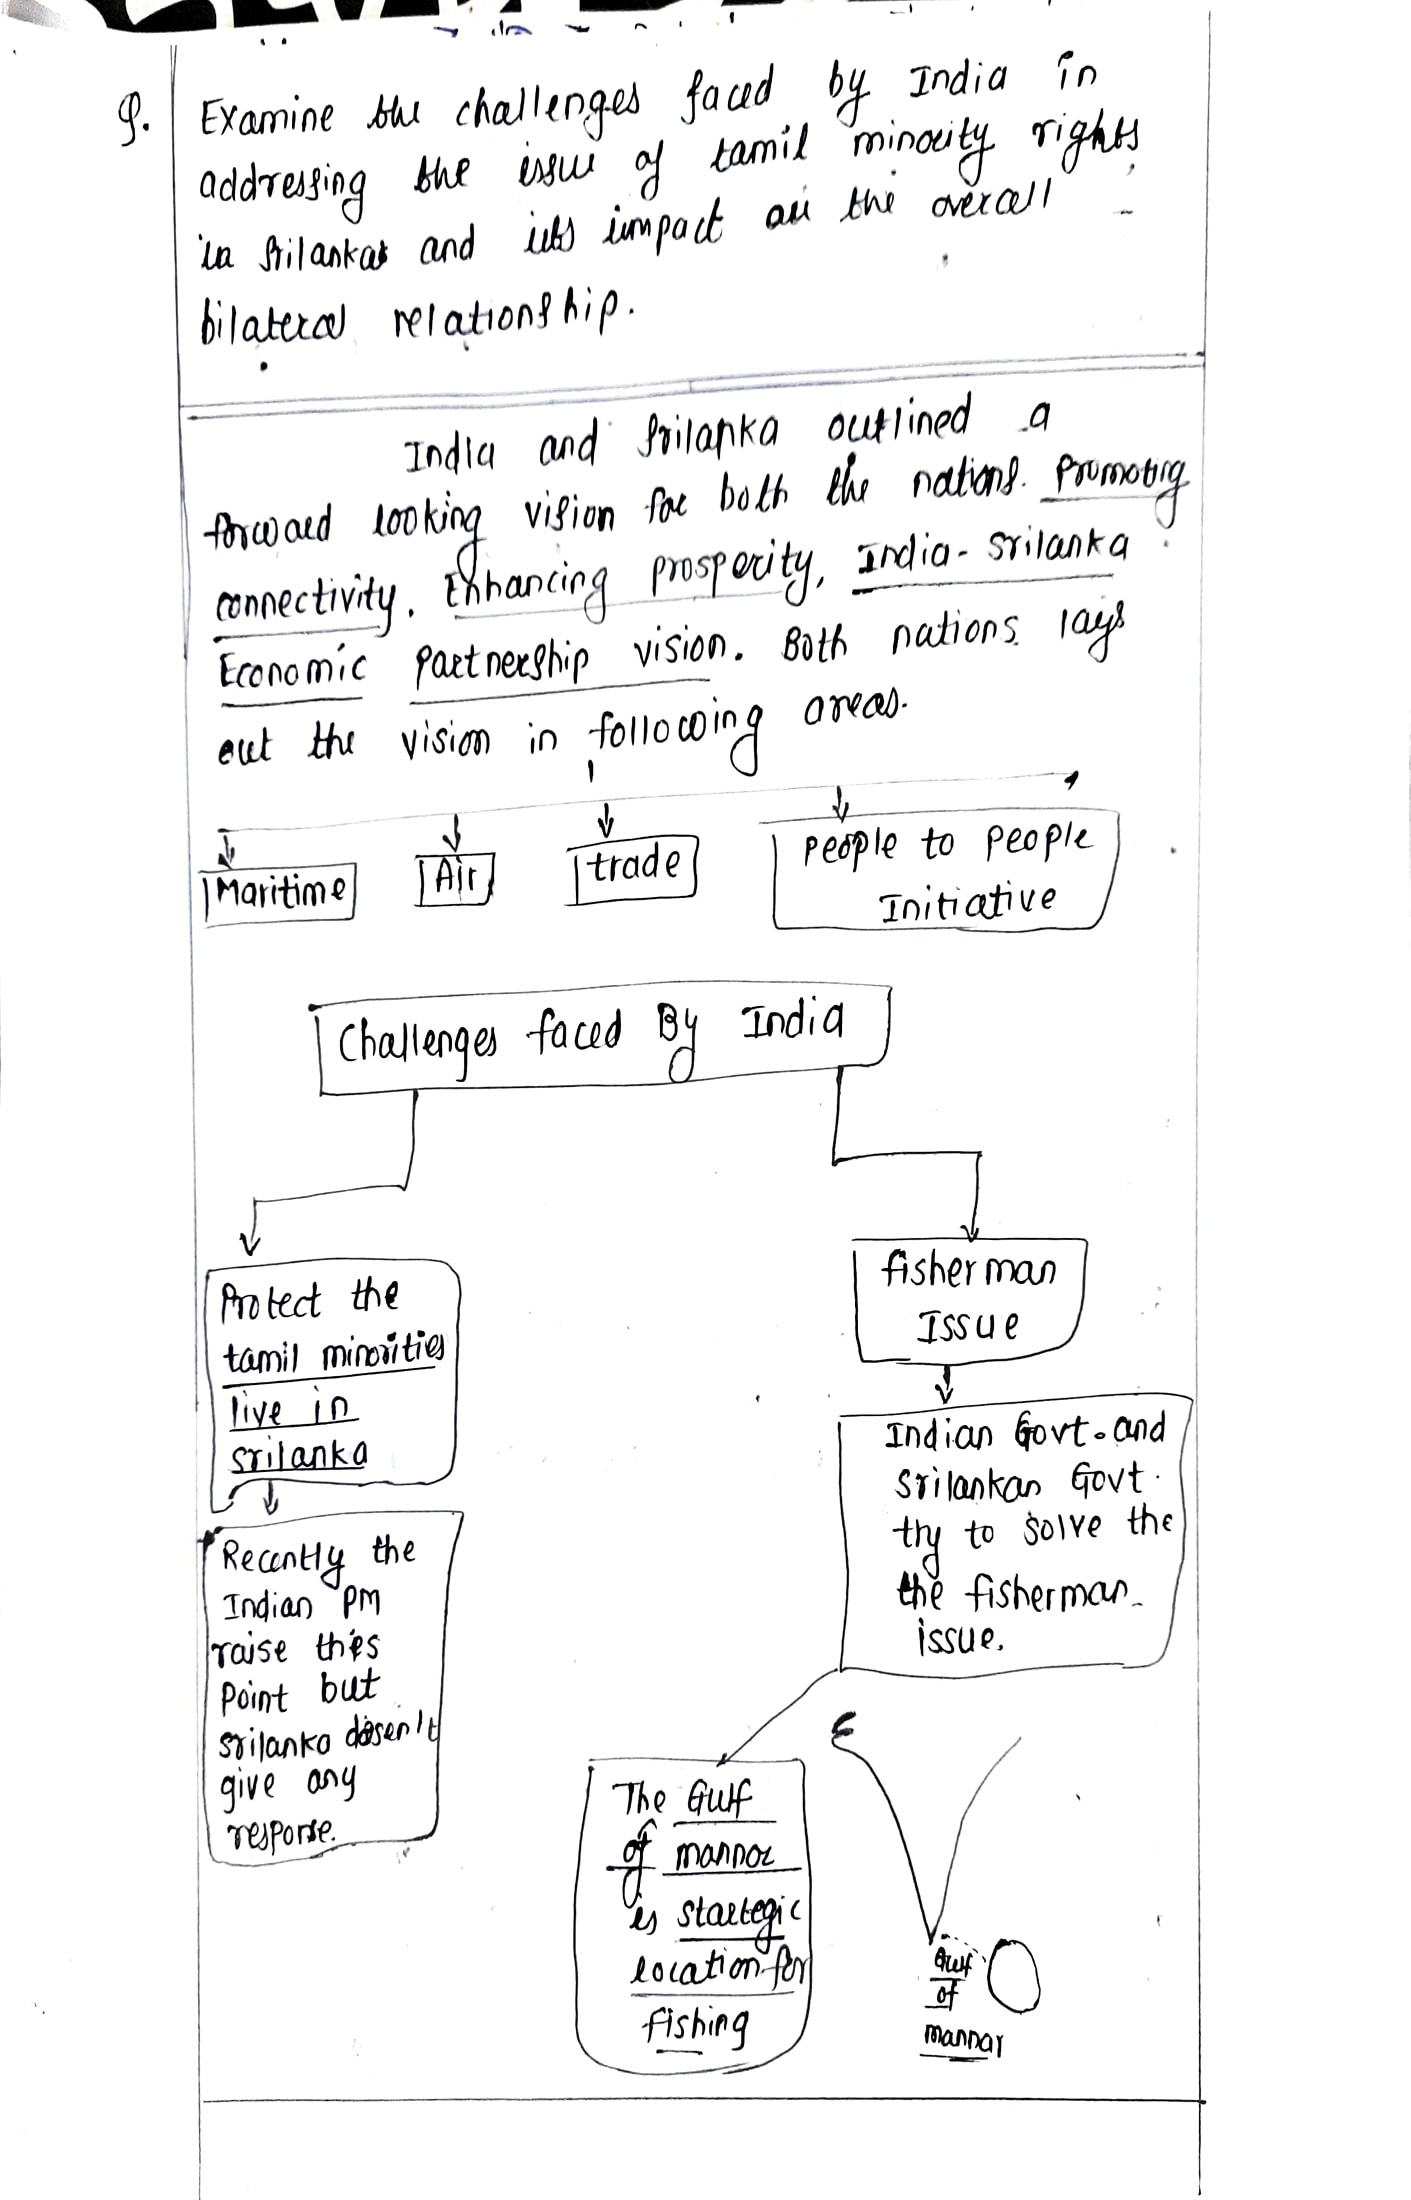 Q. Examine the challenges faced by India in
addressing the issue of tamil minority rights
in Srilanka and its impact on the overall
bilateral relationship.
India and Srilanka outlined a
forward looking vision for both the nations. Promoting
connectivity, Enhancing prosperity, India-Srilanka
Economic Partnership vision. Both nations lays
out the vision in following areas.
Maritime
Air
trade
People to People
Initiative
Challenges faced By India
Protect the
tamil minorities
live in
srilanka
Recently the
Indian PM
raise this
Point but
srilanka dosen't
give any
response.
fisherman
Issue
Indian Govt. and
srilankan Govt.
try to solve the
the fisherman
issue.
The Gulf
of mannar
is startegic
location for
fishing
Gulf
of
mannar